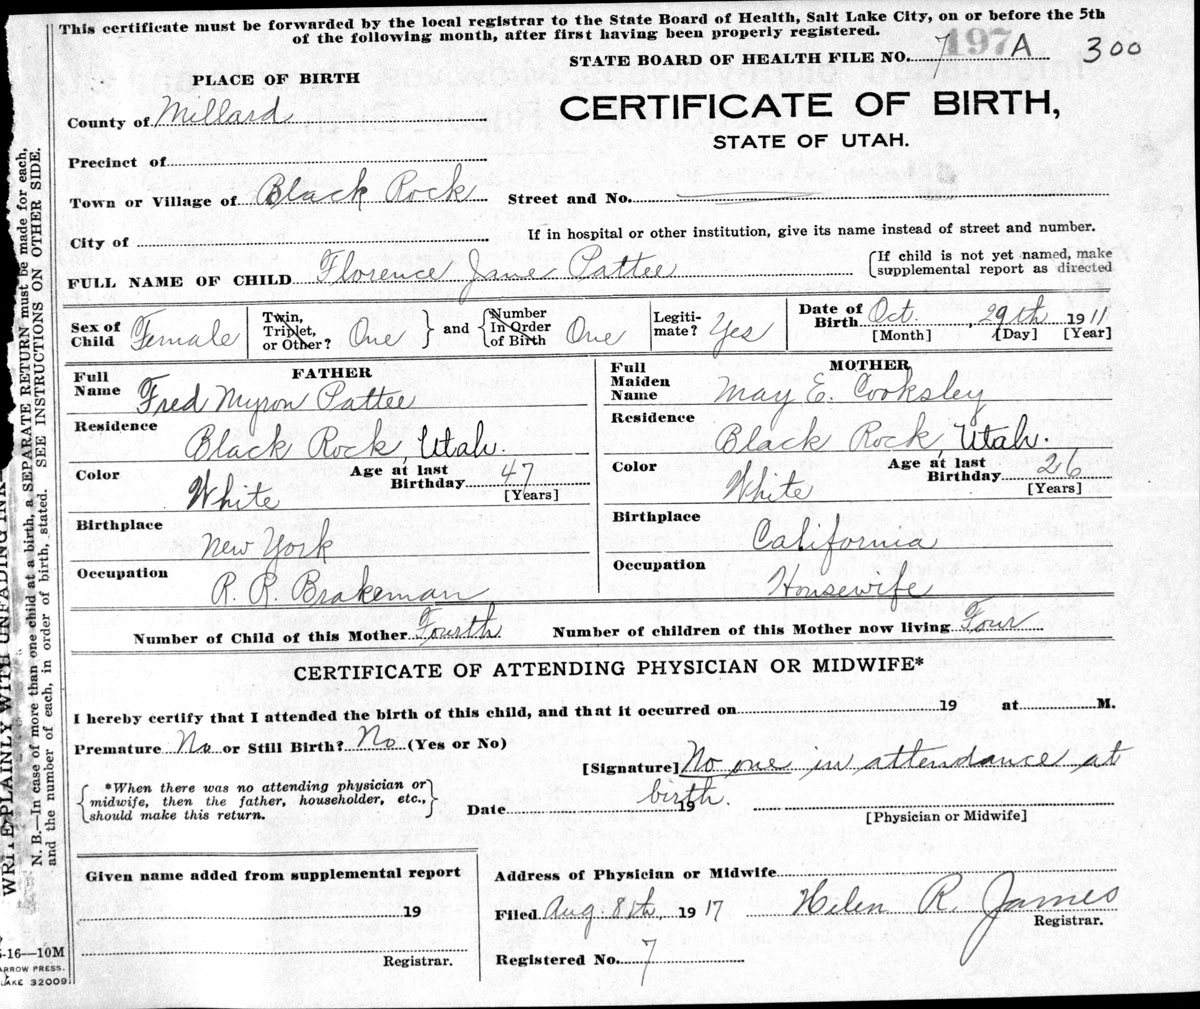 This certificate must be forwarded by the local registrar to the State Board of Health, Salt Lake City, on or before the 5th
of the following month, after first having been properly registered.
STATE BOARD OF HEALTH FILE NO. 7 197 A 300
PLACE OF BIRTH
CERTIFICATE OF BIRTH,
STATE OF UTAH.
County of Millard
Precinct of
Town or Village of Black Rock
Street and No.
City of
If in hospital or other institution, give its name instead of street and number.
FULL NAME OF CHILD Florence Jane Pattee
{If child is not yet named, make
supplemental report as directed
Sex of Child Female
Twin, Triplet, or Other? One } and { Number In Order of Birth One
Legiti-mate? Yes
Date of Birth Oct. , 29th 1911
[Month] [Day] [Year]
FATHER
Full Name Fred Myron Pattee
Residence Black Rock, Utah.
Color White
Age at last Birthday 47
[Years]
Birthplace New York
Occupation R. R. Brakeman
MOTHER
Full Maiden Name May E. Cooksley
Residence Black Rock, Utah.
Color White
Age at last Birthday 26
[Years]
Birthplace California
Occupation Housewife
Number of Child of this Mother Fourth Number of children of this Mother now living Four
CERTIFICATE OF ATTENDING PHYSICIAN OR MIDWIFE*
I hereby certify that I attended the birth of this child, and that it occurred on 19 at M.
Premature No or Still Birth? No (Yes or No)
[Signature] No one in attendance at
birth.
{*When there was no attending physician or
midwife, then the father, householder, etc.,
should make this return.}
Date 19
[Physician or Midwife]
Given name added from supplemental report
19
Registrar.
Address of Physician or Midwife
Filed Aug. 8th, 1917 Helen R. James
Registrar.
Registered No. 7
WRITE PLAINLY WITH UNFADING INK
N. B.—In case of more than one child at a birth, a SEPARATE RETURN must be made for each,
and the number of each, in order of birth, stated. SEE INSTRUCTIONS ON OTHER SIDE.
-16—10M
ARROW PRESS.
LAKE 32009